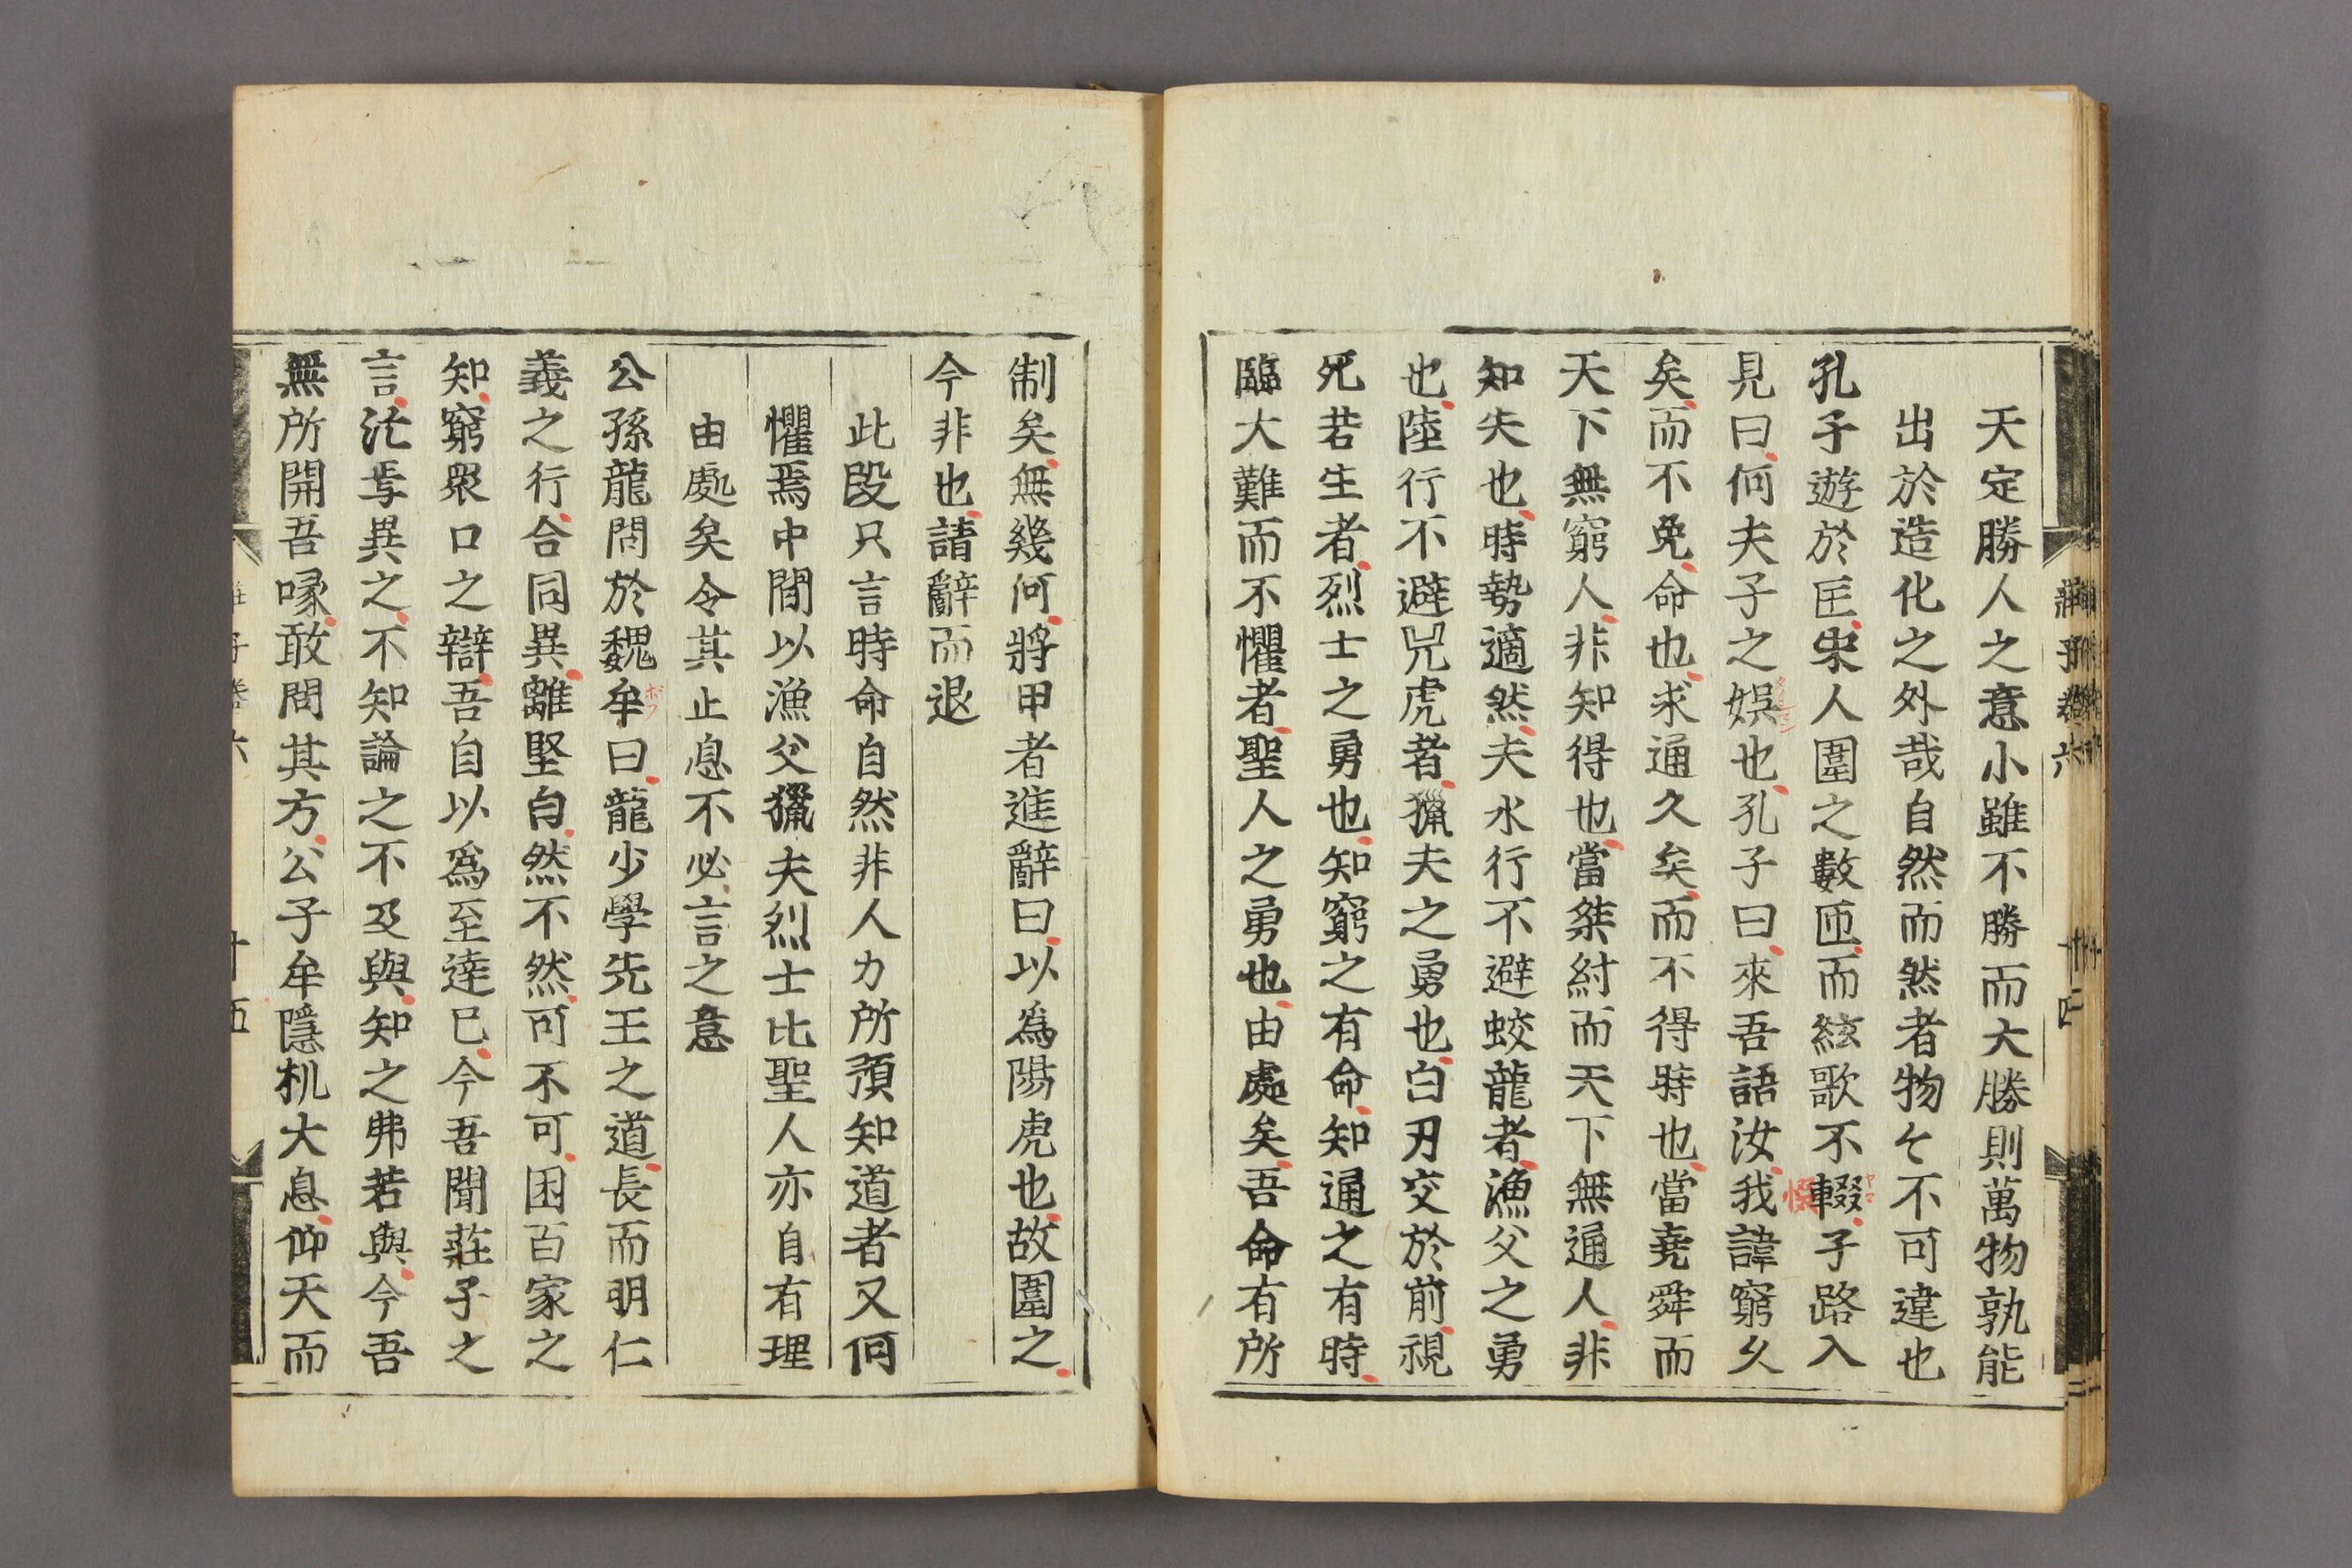 天定勝人之意小雖不勝而大勝則萬物孰能
出於造化之外哉自然而然者物々不可違也
孔子遊於匡宋人圍之數匝而絃歌不輟子路入
見曰何夫子之娯也孔子曰來吾語汝我諱窮久
矣而不免命也求通久矣而不得時也當堯舜而
天下無窮人非知得也當桀紂而天下無通人非
知失也時勢適然夫水行不避蛟龍者漁父之勇
也陸行不避兕虎者獵夫之勇也白刃交於前視
死若生者烈士之勇也知窮之有命知通之有時
臨大難而不懼者聖人之勇也由處矣吾命有所
制矣無幾何將甲者進辭曰以為陽虎也故圍之
今非也請辭而退
此段只言時命自然非人力所預知道者又何
懼焉中間以漁父獵夫烈士比聖人亦自有理
由處矣令其止息不必言之意
公孫龍問於魏牟曰龍少學先王之道長而明仁
義之行合同異離堅白然不然可不可困百家之
知窮衆口之辯吾自以爲至達已今吾聞莊子之
言汒焉異之不知論之不及與知之弗若與今吾
無所開吾喙敢問其方公子牟隱机大息仰天而
莊子卷六
十五